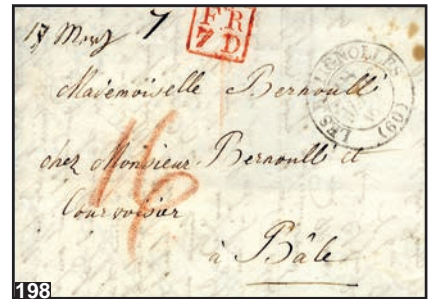 17 7
FR
7 D
LES BATIGNOLLES (60)
Mademoiselle Bernoulli
chez Monsieur Bernoulli et
Courvoisier
à Bâle
198